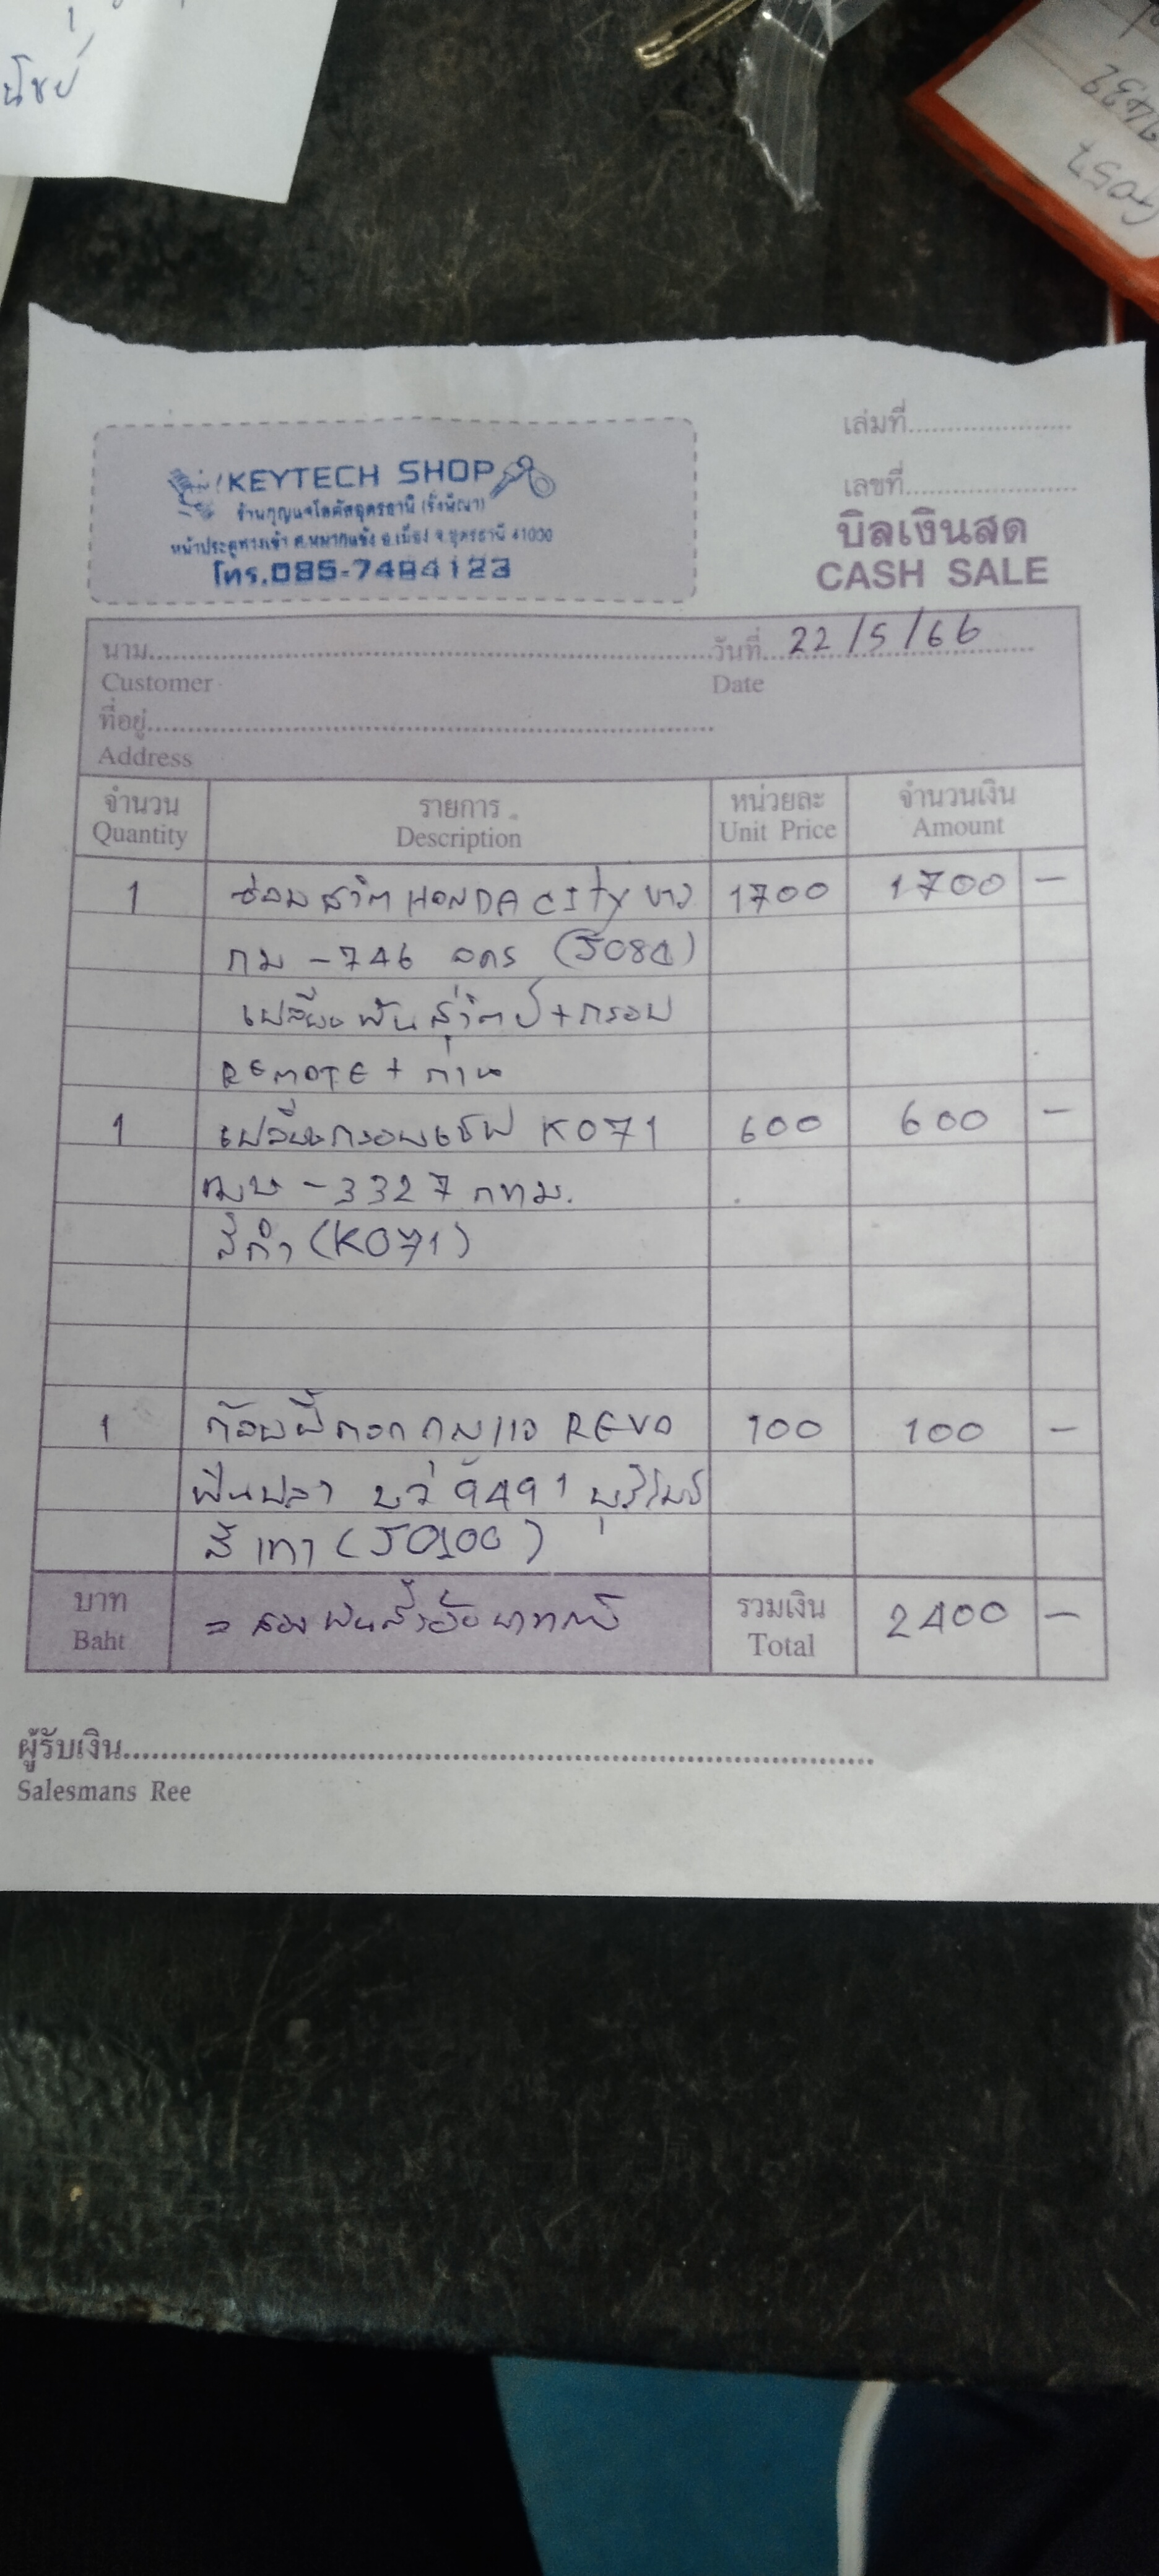 นิชย์
KEYTECH SHOP
ร้านกุญแจโลตัสอุดรธานี (รังษิณา)
หน้าประตูทางเข้า ต.หมากแข้ง อ.เมือง จ.อุดรธานี 41000
โทร.085-7484123
เล่มที่
เลขที่
บิลเงินสด
CASH SALE
นาม วันที่ 22/5/66
Customer Date
ที่อยู่
Address
จำนวน รายการ หน่วยละ จำนวนเงิน
Quantity Description Unit Price Amount
1 ซ่อมสวิต HONDA CITY ขาว 1700 1700 -
กม -746 อดร (5084)
เปลี่ยน สวิตป์+กรอบ
REMOTE + ถ่าน
1 เปลี่ยนกรอบ K071 600 600 -
-3327 กทม.
สีดำ (K071)
1 กุญแจ REVO 100 100 -
9491 บุรีรัมย์
สีเทา (50100)
บาท = สองพันสี่ร้อยบาทถ้วน รวมเงิน 2400 -
Baht Total
ผู้รับเงิน
Salesmans Ree